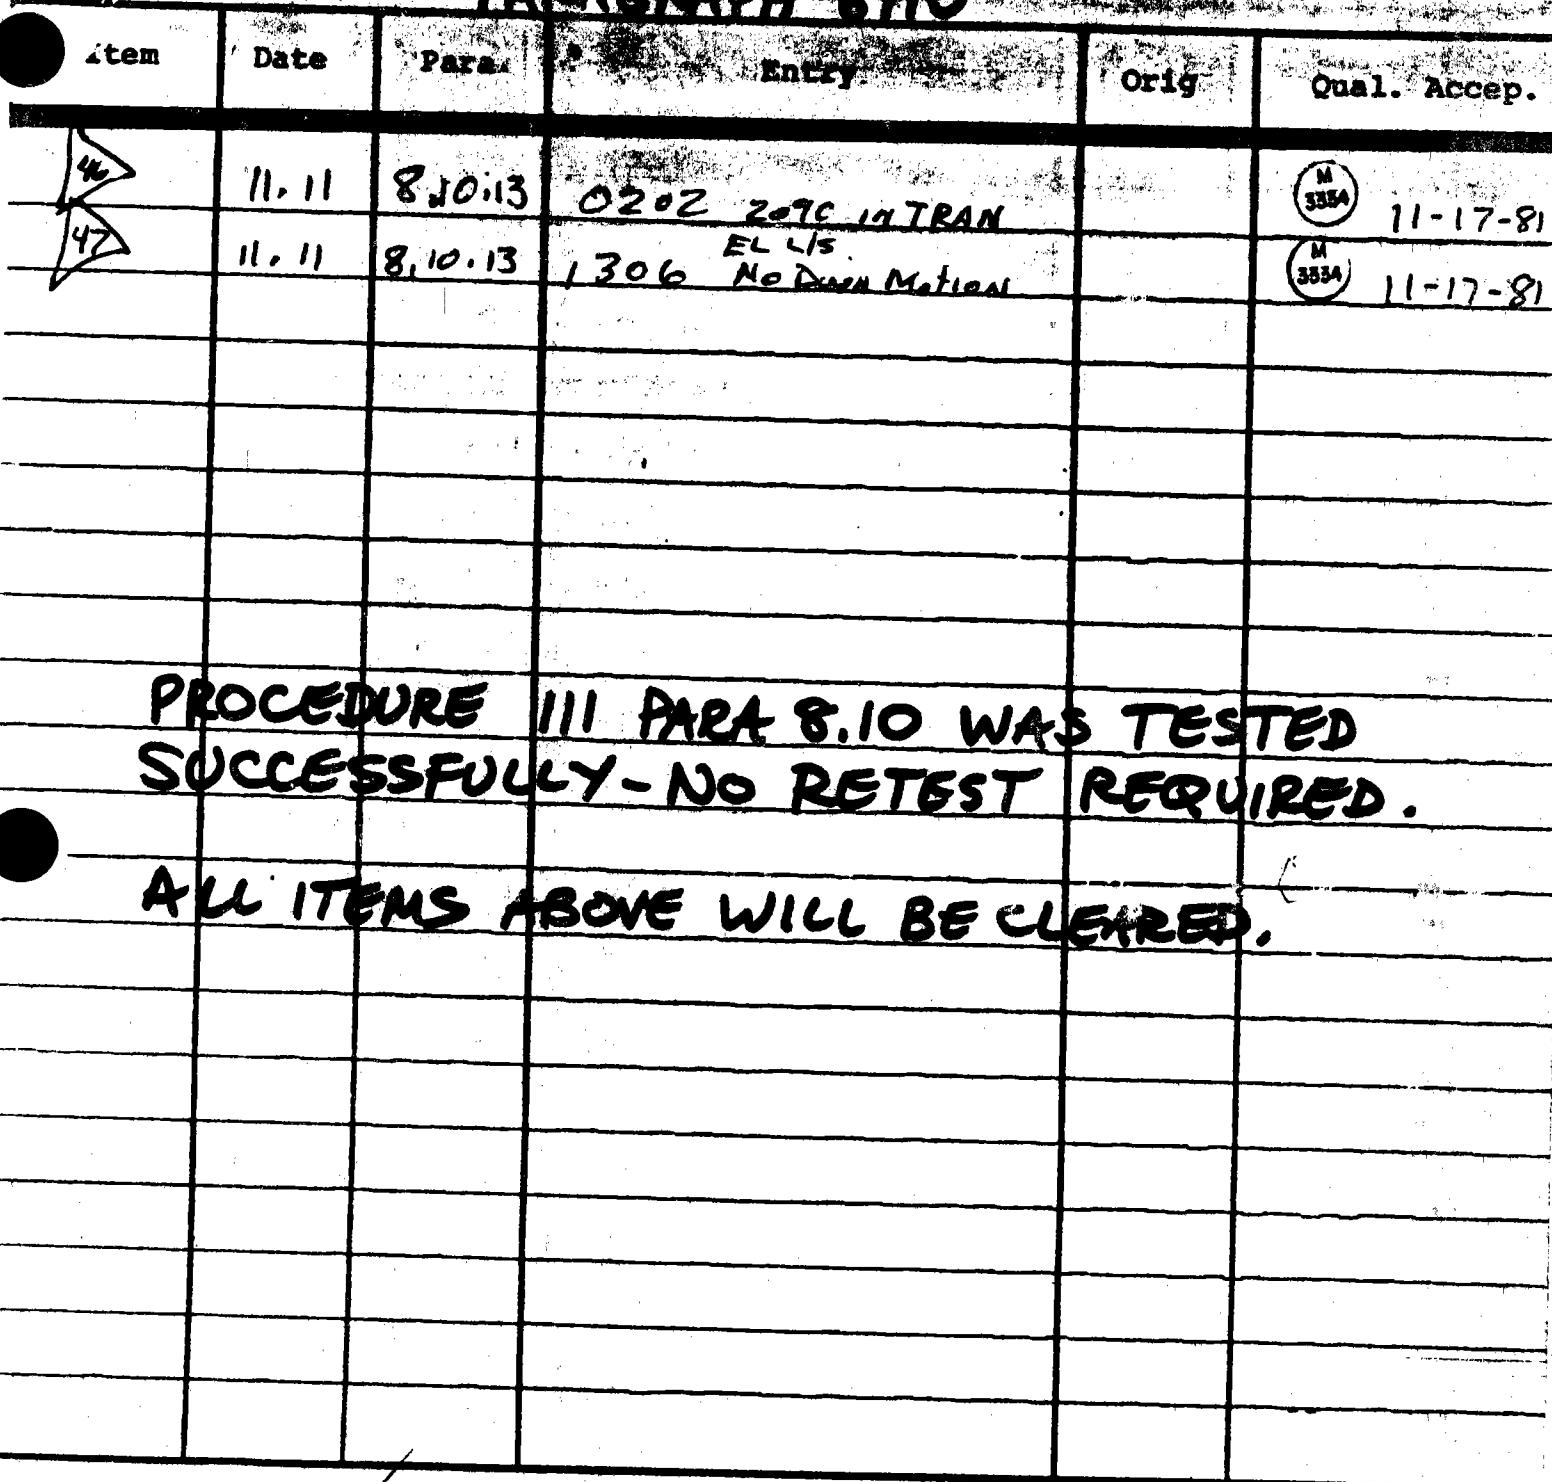 PARAGRAPH
Item Date Para. Entry Orig Qual. Accep.
46 11.11 8.10.13 0202 209C in TRAN M 3334 11-17-81
EL L/S
47 11.11 8.10.13 1306 No Down Motion M 3334 11-17-81
PROCEDURE III PARA 8.10 WAS TESTED
SUCCESSFULLY - NO RETEST REQUIRED.
ALL ITEMS ABOVE WILL BE CLEARED.